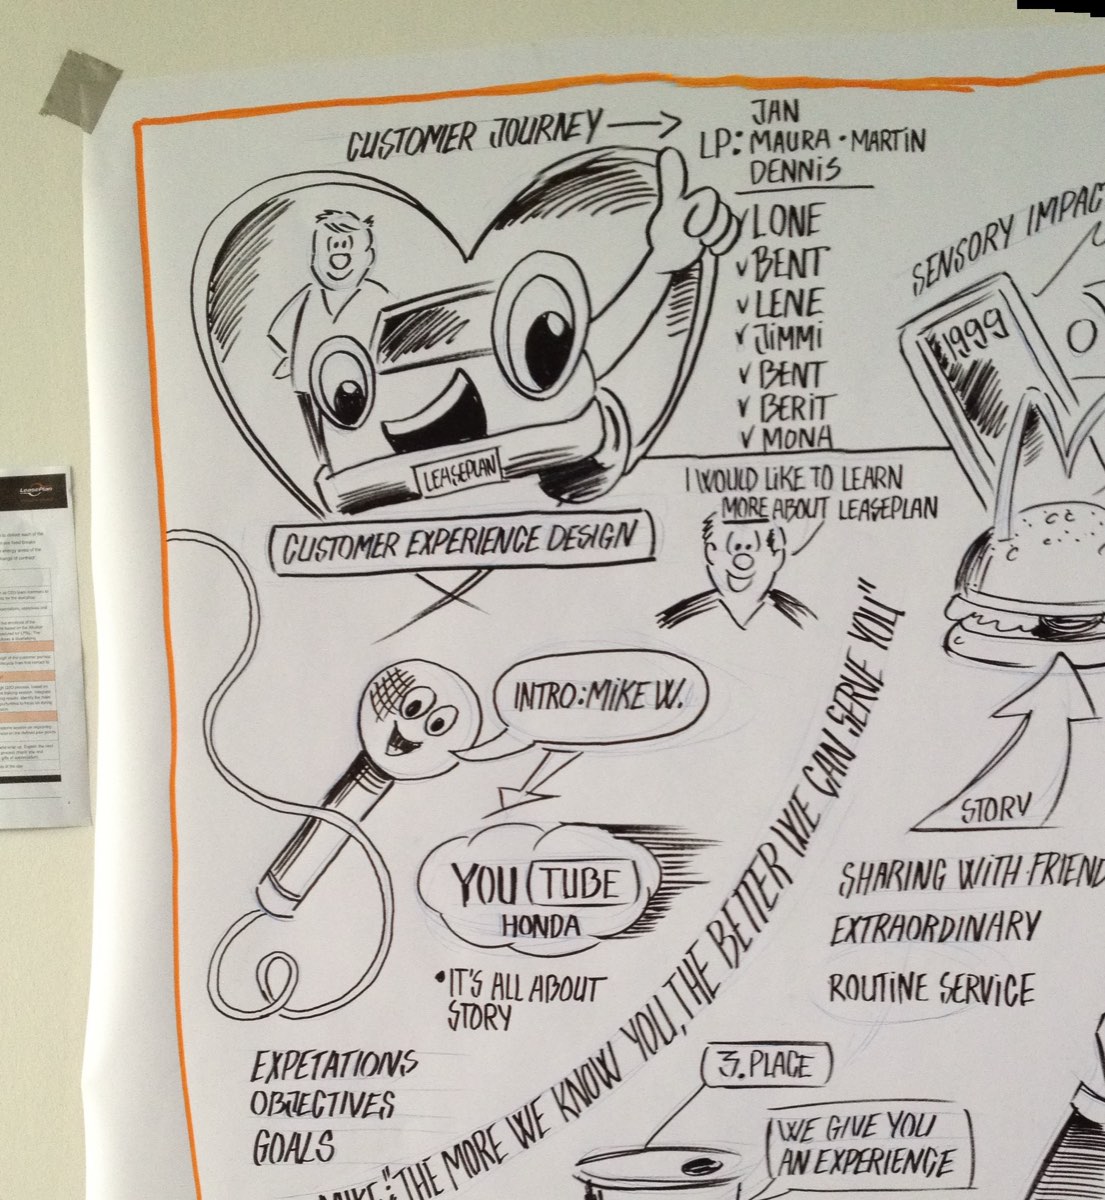 CUSTOMER JOURNEY
JAN
LP: MAURA · MARTIN
DENNIS
LONE
BENT
LENE
JIMMI
BENT
BERIT
MONA
SENSORY IMPACT
1999
LEASEPLAN
CUSTOMER EXPERIENCE DESIGN
I WOULD LIKE TO LEARN
MORE ABOUT LEASEPLAN
LeasePlan
INTRO: MIKE W.
YOU TUBE
HONDA
• IT'S ALL ABOUT
STORY
STORY
SHARING WITH FRIEND
EXTRAORDINARY
ROUTINE SERVICE
EXPETATIONS
OBJECTIVES
GOALS
MIKE: "THE MORE WE KNOW YOU, THE BETTER WE CAN SERVE YOU"
3. PLACE
WE GIVE YOU
AN EXPERIENCE